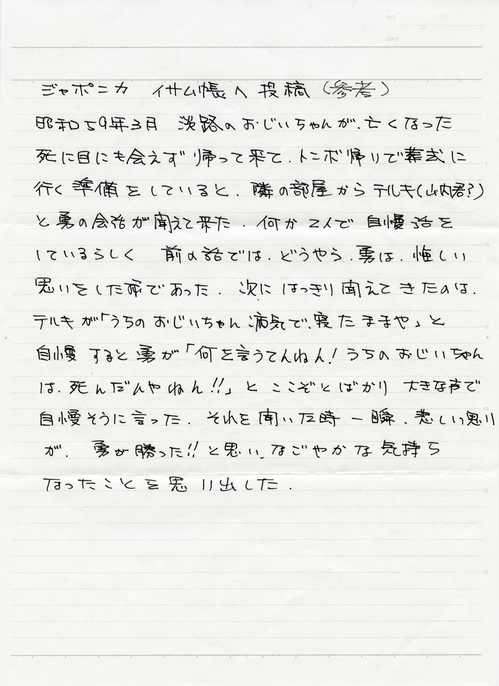 ジャポニカ イサム帳へ投稿(参考)
昭和59年3月 淡路のおじいちゃんが、亡くなった
死に目にも会えず帰って来て、トンボ帰りで葬式に
行く準備をしていると、隣の部屋からテルキ(山内君?)
と勇の会話が聞えて来た。何か2人で自慢話を
しているらしく 前の話では、どうやら、勇は、悔しい
思いをした様であった。次にはっきり聞えてきたのは、
テルキが「うちのおじいちゃん病気で、寝たままや」と
自慢すると勇が「何を言うてんねん!うちのおじいちゃん
は、死んだんやねん!!」と ここぞとばかり 大きな声で
自慢そうに言った。それを聞いた時一瞬、悲しい思い
が、勇が勝った!!と思い、なごやかな気持ち
なったことを思い出した.